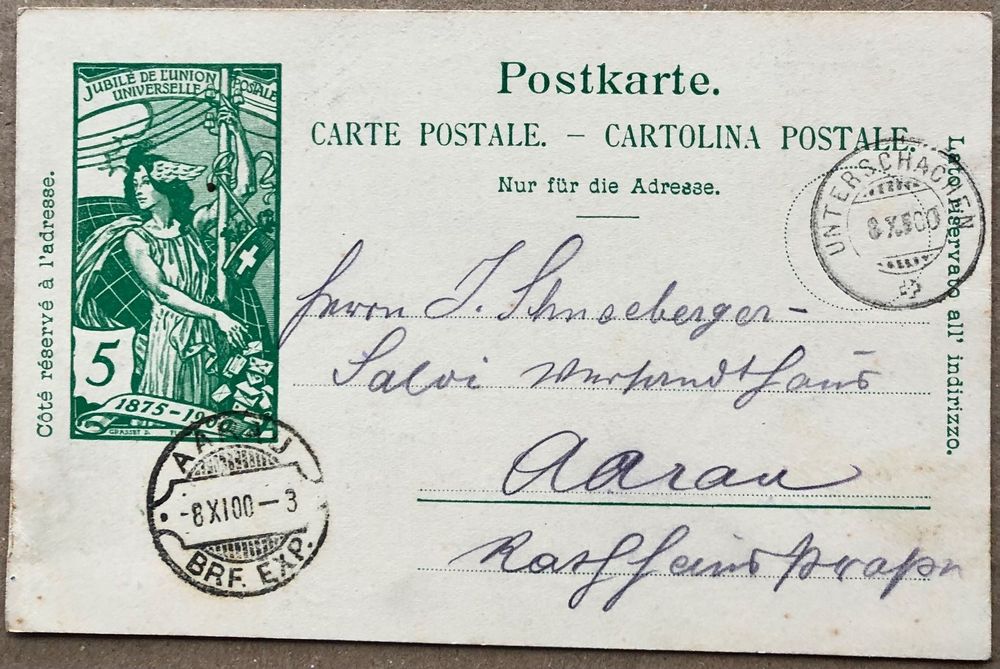 JUBILÉ DE L'UNION
POSTALE
UNIVERSELLE
5
1875-19
GRASSET D.
Postkarte.
CARTE POSTALE. – CARTOLINA POSTALE.
Nur für die Adresse.
Côté réservé à l'adresse.
Lato riservato all' indirizzo.
UNTERSCHÄCHEN
8 XI 00
Herrn J. Schneeberger-
Salvi Versandthaus
Aarau
Rathhausstrasse
AARAU
-8 XI 00-3
BRF. EXP.